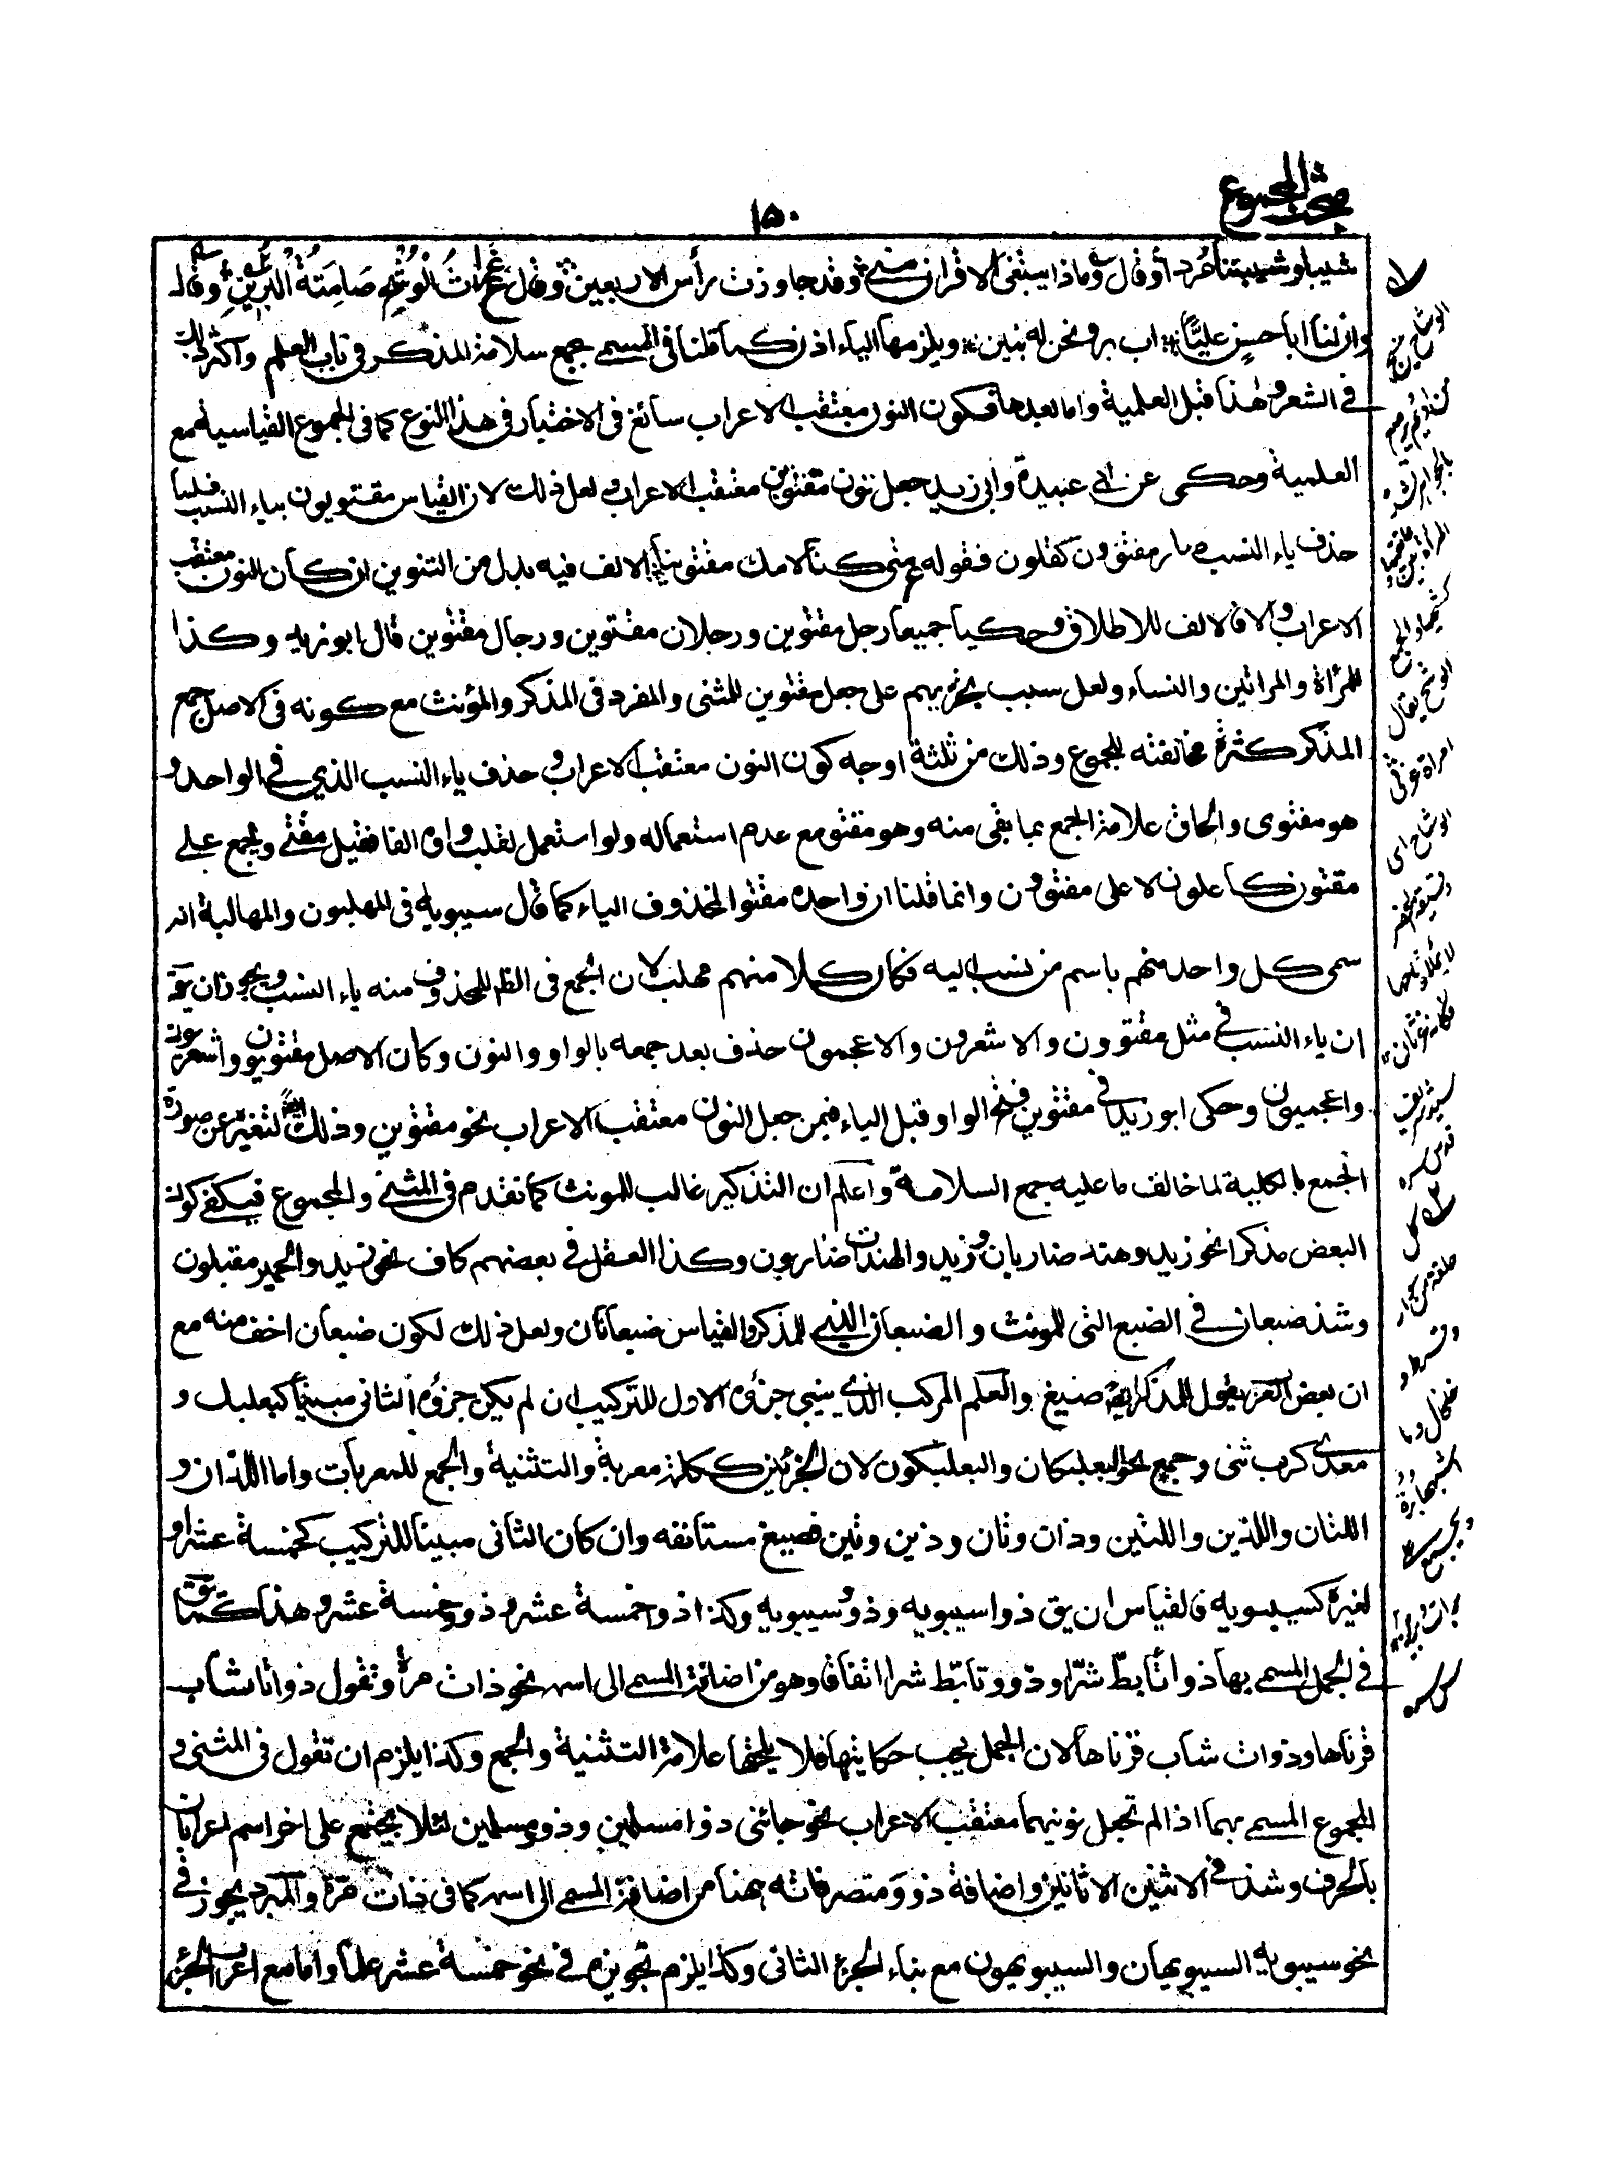 مبحث المجموع
١٥٠
شيبا وشيبننا مردا وقال ع وماذا يبتغى الاقران منى وقد جاوزت رأس الاربعين وقال ع غراث الوشح صامتة البرين وقال
وان لنا ابا حسن عليا اب بر ونحن له بنين ويلزمها الياء اذن كما قلنا فى المسمى بجمع سلامة المذكر فى باب العلم واكثر ذلك
فى الشعر وهذا قبل العلمية واما بعدها فكون النون معتقب الاعراب سائغ فى الاختيار فى هذا النوع كما فى الجموع القياسية مع
العلمية وحكى عن ابى عبيدة وابى زيد جعل نون مقتوين معتقب الاعراب ولعل ذلك لان القياس مقتويون بياء النسب فلما
حذف ياء النسب صار مقتوون كقلون فقوله ع متى كنا لامك مقتوينا الالف فيه بدل من التنوين ان كان النون معتقب
الاعراب والا فالالف للاطلاق وحكيا جميعا رجل مقتوين ورجلان مقتوين ورجال مقتوين قال ابو زيد وكذا
للمرأة والمراتين والنساء ولعل سبب تجريهم على جعل مقتوين للمثنى والمفرد فى المذكر والمؤنث مع كونه فى الاصل جمع
المذكر كثرة مخالفته للجموع وذلك من ثلثة اوجه كون النون معتقب الاعراب وحذف ياء النسب الذى فى الواحد و
هو مقتوى والحاق علامة الجمع بما بقى منه وهو مقتو مع عدم استعماله ولو استعمل لقلب واوه الفا فقيل مقتى ولجمع على
مقتون كاعلون لا على مقتوون وانما قلنا ان واحده مقتو المحذوف الياء كما قال سيبويه فى المهلبون والمهالبة انه
سمى كل واحد منهم باسم من نسب اليه فكان كلا منهم مهلب لان الجمع فى الظ للمحذوف منه ياء النسب ويجوز ان يق
ان ياء النسب فى مثل مقتوون والاشعرون والاعجمون حذف بعد جمعه بالواو والنون وكان الاصل مقتويون واشعريون
واعجميون وحكى ابو زيد فى مقتوين فتح الواو قبل الياء فيمن جعل النون معتقب الاعراب نحو مقتوين وذلك ايضا لتغيره عن صورة
الجمع بالكلية لما خالف ما عليه جمع السلامة واعلم ان التذكير غالب للمونث كما تقدم فى المثنى والمجموع فيكفى كون
البعض مذكرا نحو زيد وهند ضاربان وزيد والهندات ضاربون وكذا العقل فى بعضهم كاف نحو زيد والحمير مقبلون
وشذ ضبعان فى الضبع التى للمونث والضبعان الذى للمذكر والقياس ضبعانان ولعل ذلك لكون ضبعان اخف منه مع
ان بعض العرب يقول للمذكر ايضا ضبع والعلم المركب الذى يبنى جزؤه الاول للتركيب ان لم يكن جزؤه الثانى مبنيا كبعلبك و
معدى كرب ثنى وجمع نحو البعلبكان والبعلبكون لان الجزئين ككلمة معربة والتثنية والجمع للمعربات واما اللذان و
اللتان واللذين واللتين وذان وتان وذين وتين فصيغ مستانفه وان كان الثانى مبنيا للتركيب كخمسة عشر او
لغيره كسيبويه فالقياس ان يق ذوا سيبويه وذوو سيبويه وكذا ذوا خمسة عشر وذوو خمسة عشر وهذا كما يق
فى الجمل المسمى بها ذوا تأبط شرا وذوو تابط شرا اتفاقا وهو من اضافة المسمى الى اسمه نحو ذات مرة وتقول ذواتا شاب
قرناها وذوات شاب قرناها لان الجمل يجب حكايتها فلا يلحقها علامة التثنية والجمع وكذا يلزم ان تقول فى المثنى و
المجموع المسمى بهما اذا لم تجعل نونيهما معتقب الاعراب نحو جائنى ذوا مسلمين وذوو مسلمين لئلا يجتمع على اخر اسم اعرابان
بالحرف وشذ فى الاثنين الاثانين واضافة ذو ومتصرفاته ههنا من اضافة المسمى الى اسمه كما فى ذات مرة والمبرد يجوز فى
نحو سيبويه السيبويهان والسيبويهون مع بناء الجزء الثانى وكذا يلزم تجويزه فى نحو خمسة عشر علما واما مع اعراب الجزء
امراة غرثى
الوشاح اى
دقيقة الخصر
سيد شريف
قدس سره